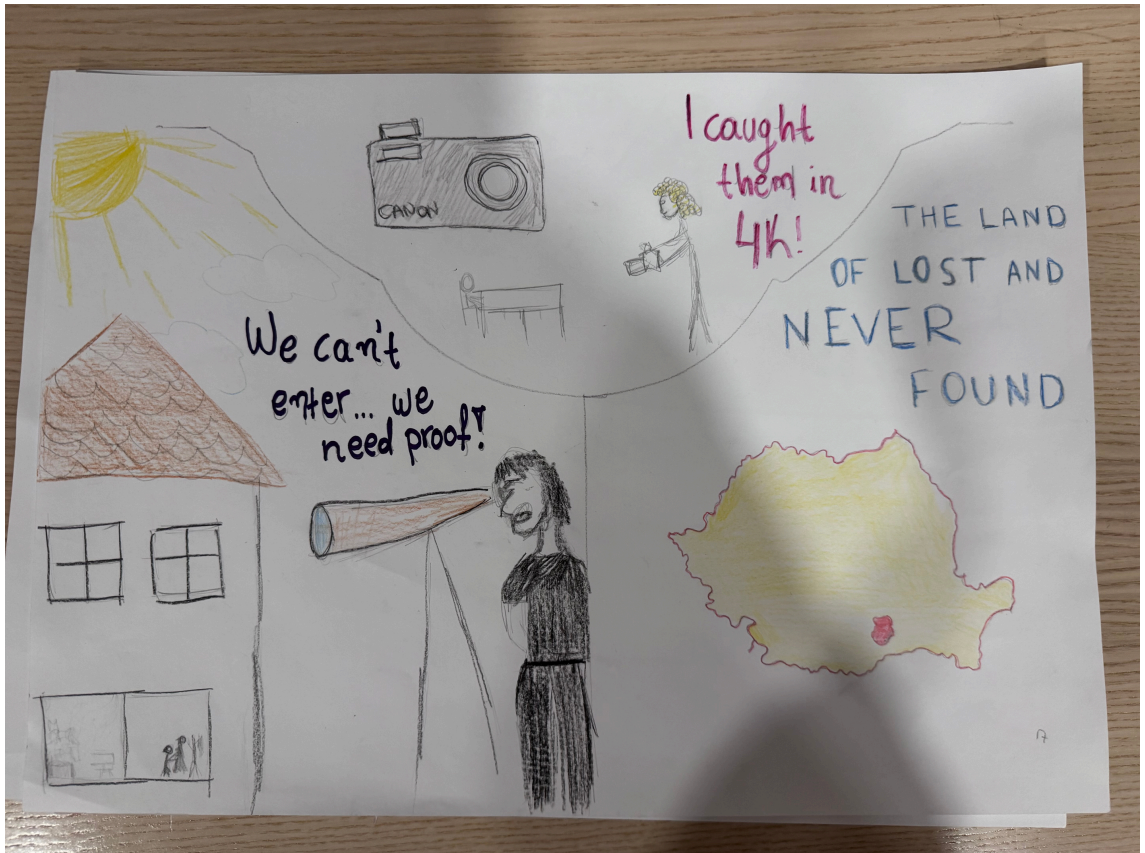 CANON
I caught
them in
4K!
THE LAND
OF LOST AND
NEVER
FOUND
We can't
enter... we
need proof!